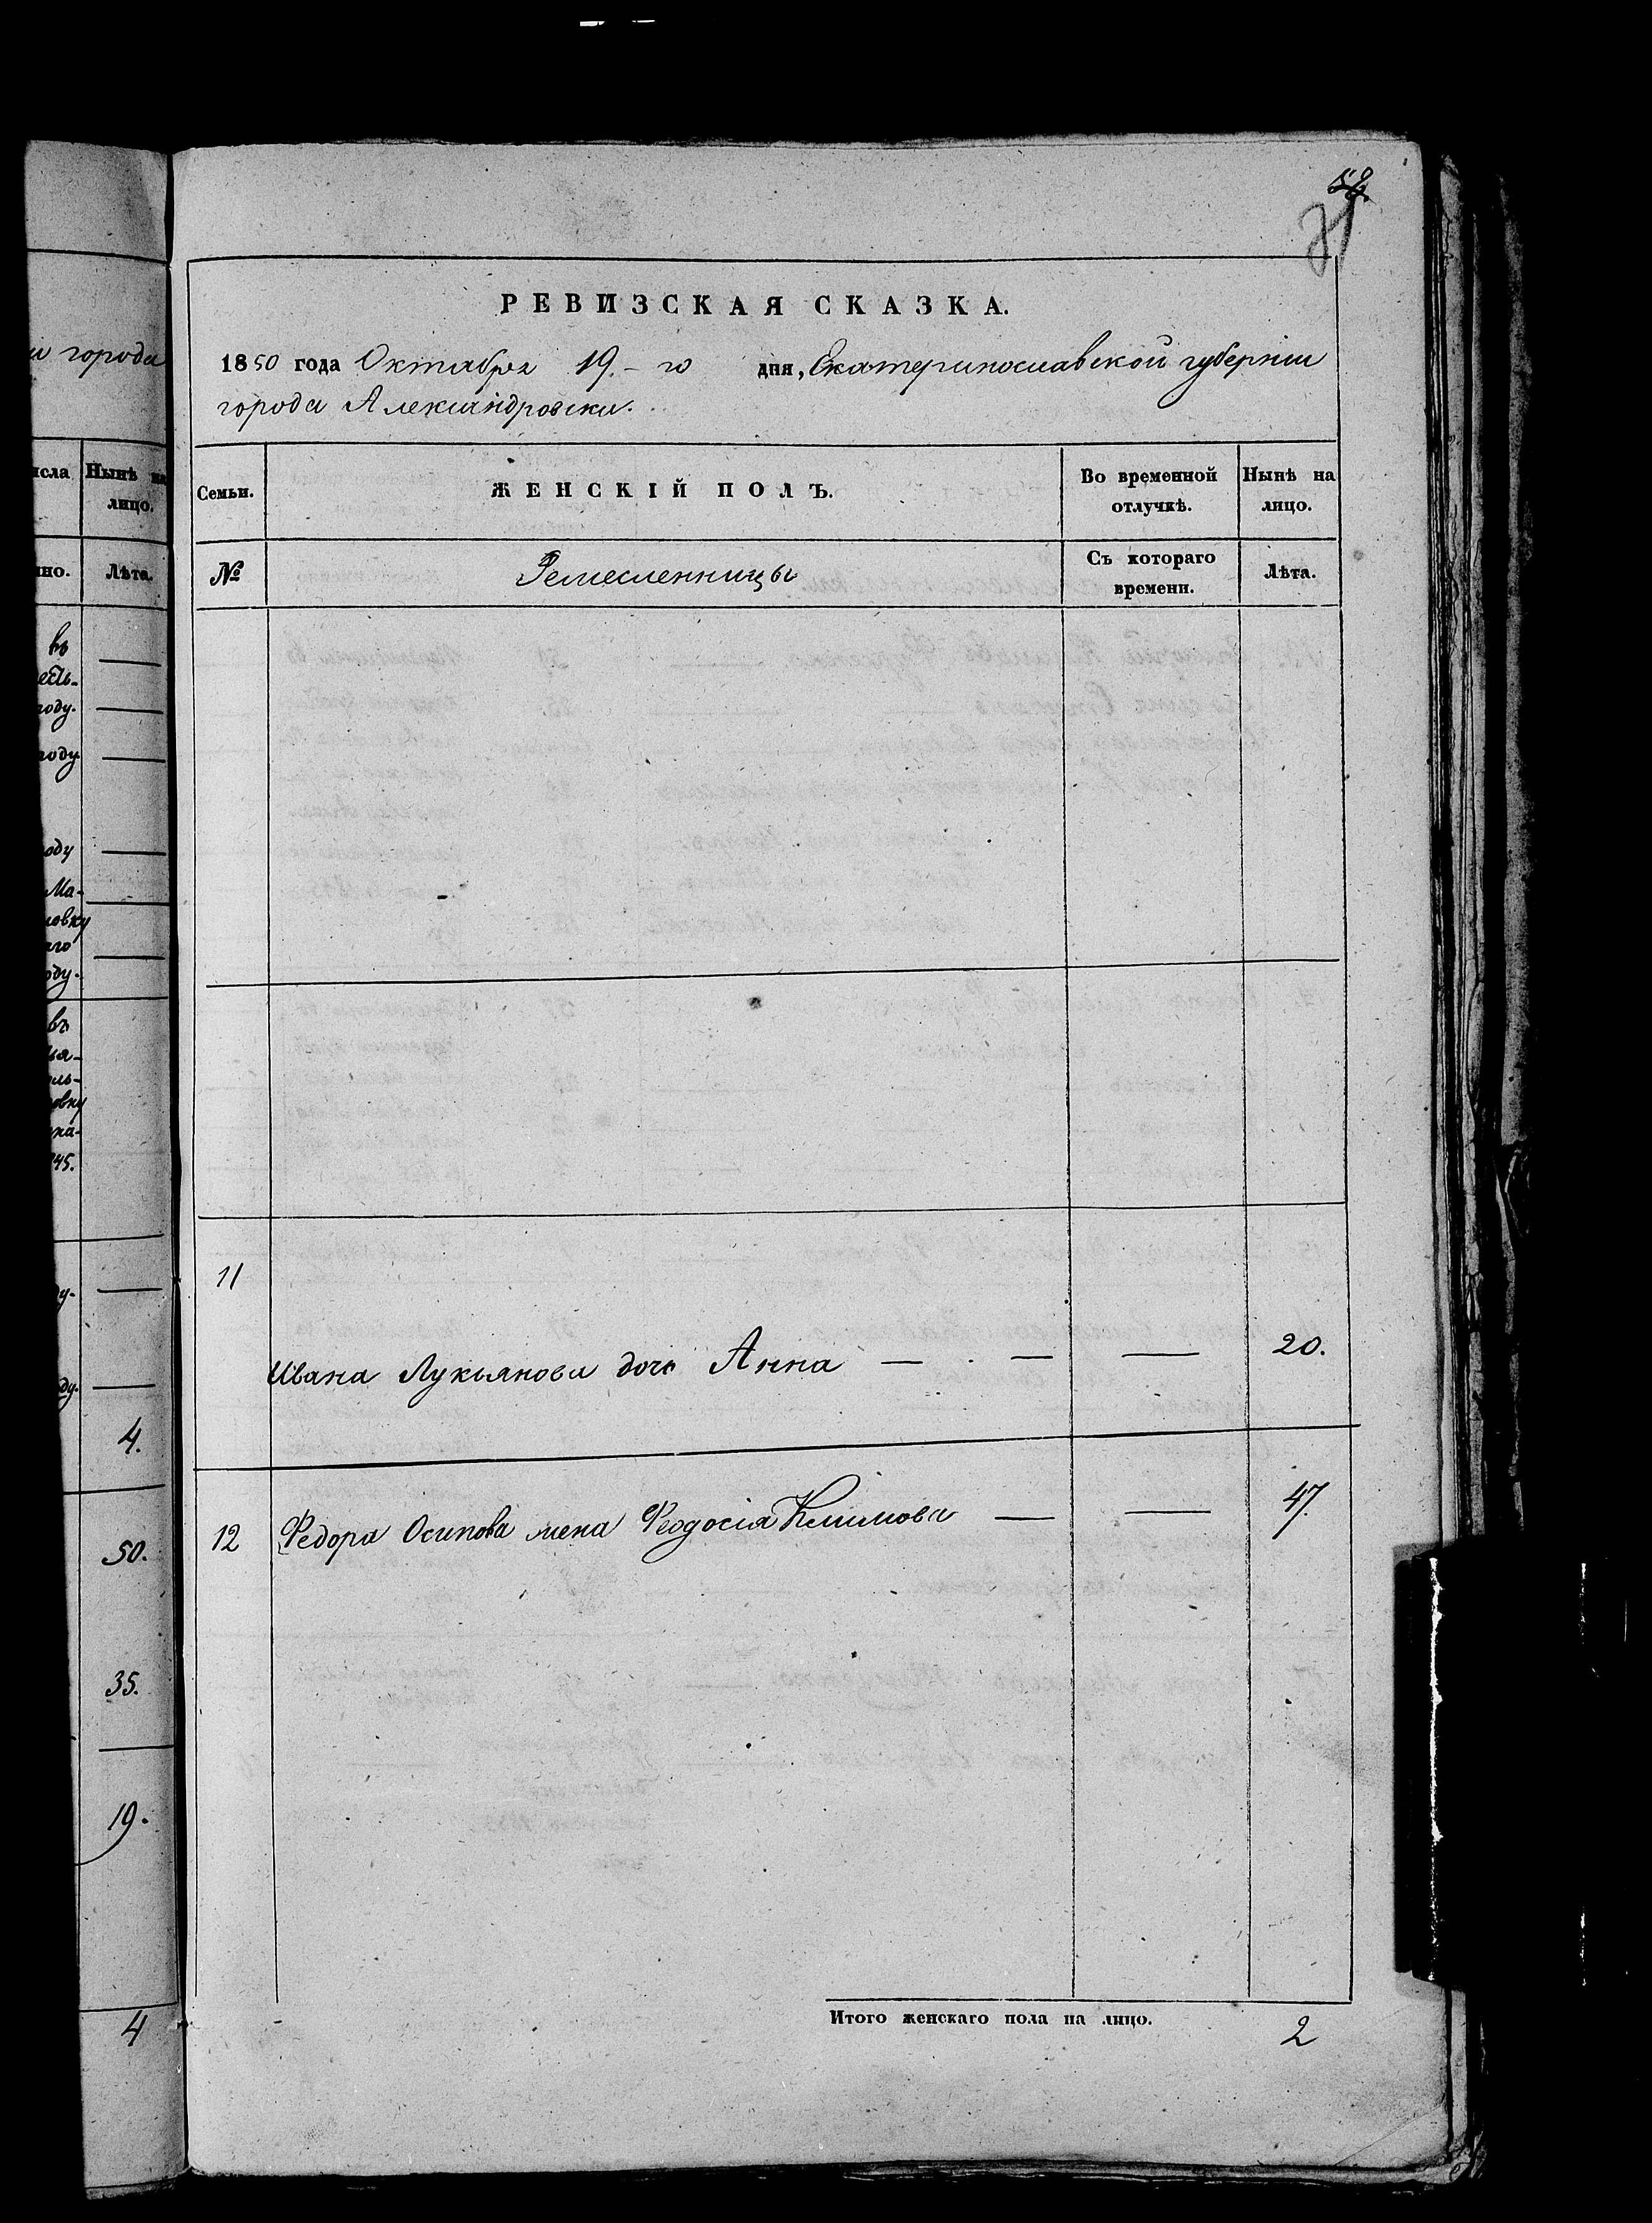 58.
РЕВИЗСКАЯ СКАЗКА.
1850 года Октября 19.-го дня, Екатеринославской губерніи
города Александровска.
Семьи. ЖЕНСКІЙ ПОЛЪ. Во временной отлучкѣ. Нынѣ на лицо.
№ Ремесленницы Съ котораго времени. Лѣта.
11
Ивана Лукьянова дочь Анна — — — 20.
12 Федора Осипова жена Феодосія Климова — — 47.
Итого женскаго пола на лицо. 2
и города
Нынѣ на
лицо.
Лѣта.
въ
году.
году
оду
Ма-
овку
аго
оду.
въ
ья-
овку
ка-
45.
4.
50.
35.
19.
4